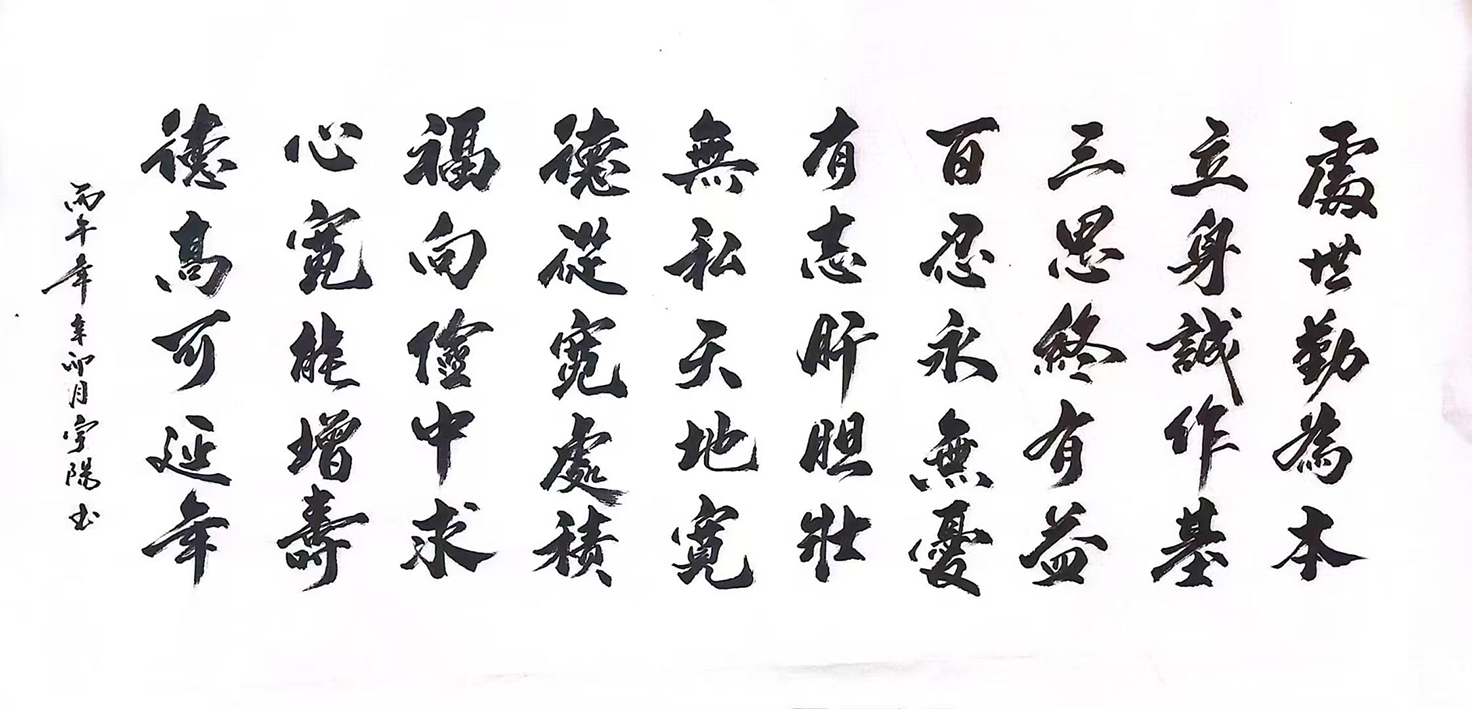 處世勤為本
立身誠作基
三思終有益
百忍永無憂
有志肝胆壯
無私天地寬
德從寬處積
福向儉中求
心寬能增壽
德高可延年
丙午年辛卯月宇陽书